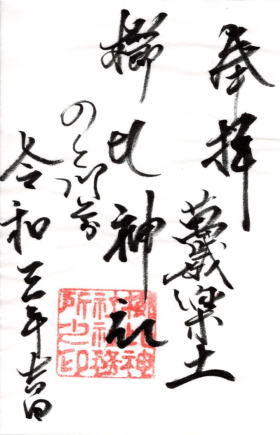 奉拝
萬歳楽土
櫛比神社
のと門前
令和三年吉日
櫛比神
社社務
所之印